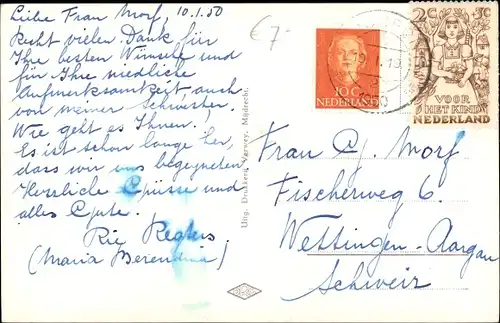 Liebe Frau Morf, 10.1.50
Recht vielen Dank für
Ihre besten Wünsche und
für Ihre niedliche
Aufmerksamkeit, auch
von meiner Schwester.
Wie geht es Ihnen?
Es ist schon lange her,
dass wir uns begegneten
Herzliche Grüsse und
alles Gute.
Rie
(Maria
€7-
10 C
NEDERLAND
2 C
VOOR
HET KIND
NEDERLAND
Uitg. Drukkerij Verwey, Mijdrecht.
Frau C. Morf
Fischerweg 6
Wettingen-Aargau
Schweiz